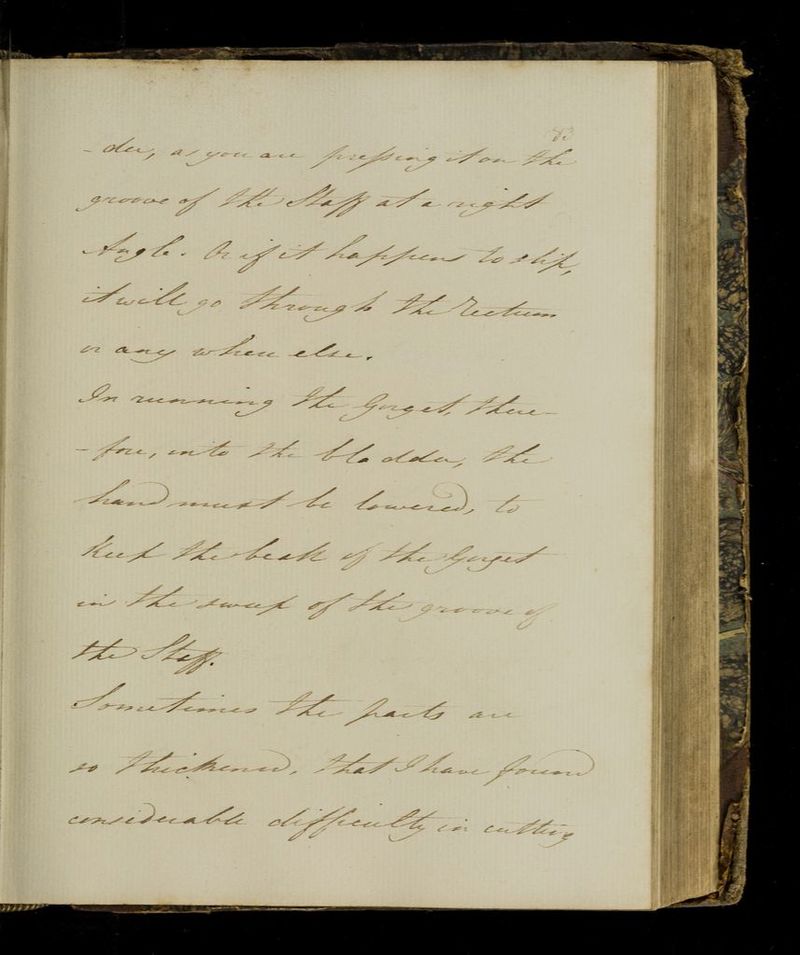 -der, as you are pressing it on the
groove of the Staff at a right
Angle. Or if it happens to slip,
it will go through the Rectum
or any where else.
In running the Gorget, there-
-fore, into the bladder, the
hand must be lowered, to
keep the beak of the Gorget
in the sweep of the groove of
the Staff.
Sometimes the parts are
so thickened, that I have found
considerable difficulty in cutting